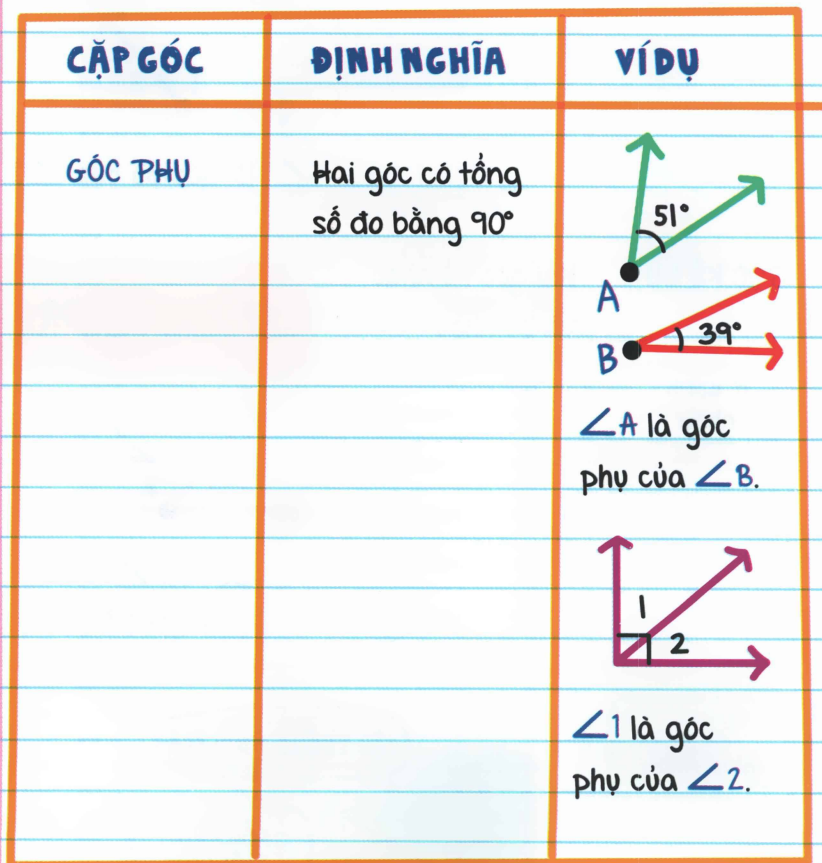 CẶP GÓC
ĐỊNH NGHĨA
VÍ DỤ
GÓC PHỤ
Hai góc có tổng
số đo bằng 90°
51°
A
39°
B
∠A là góc
phụ của ∠B.
1
2
∠1 là góc
phụ của ∠2.